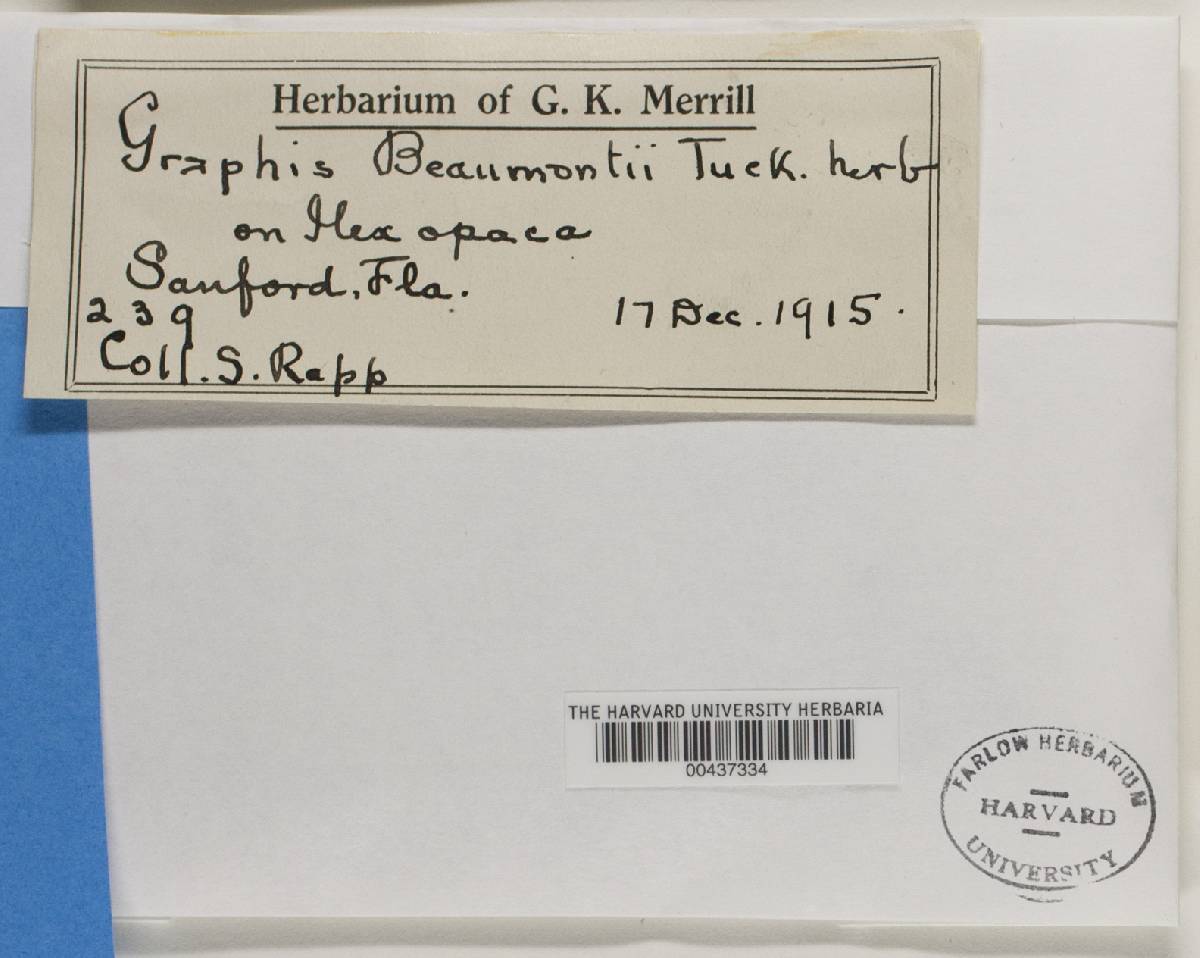 Herbarium of G. K. Merrill
Graphis Beaumontii Tuck. herb
on Ilex opaca
Sanford, Fla.
239
17 Dec. 1915.
Coll. S. Rapp
THE HARVARD UNIVERSITY HERBARIA
00437334
FARLOW HERBARIUM
HARVARD
UNIVERSITY